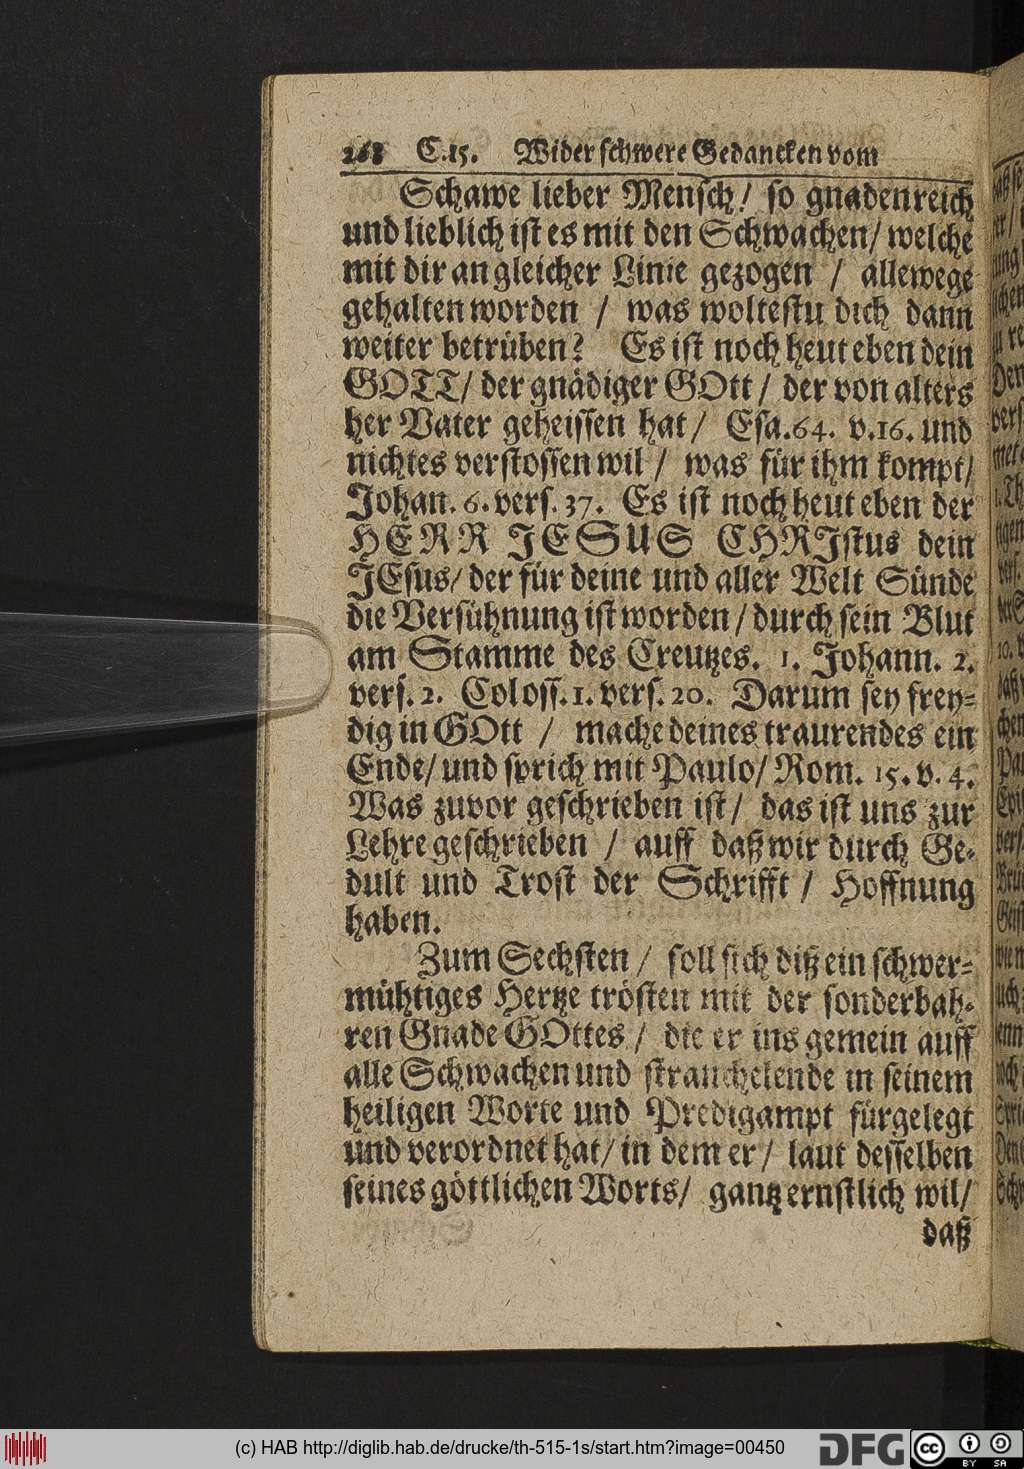 C. 15. Wider schwere Gedancken vom
Schawe lieber Mensch / so gnadenreich
und lieblich ist es mit den Schwachen / welche
mit dir an gleicher Linie gezogen / allewege
gehalten worden / was woltestu dich dann
weiter betrüben? Es ist noch heut eben dein
GOTT / der gnädiger GOtt / der von alters
her Vater geheissen hat / Esa. 64. v. 16. und
nichtes verstossen wil / was für ihm kompt /
Johan. 6. vers. 37. Es ist noch heut eben der
HERR JESUS CHRIstus dein
JEsus / der für deine und aller Welt Sünde
die Versühnung ist worden / durch sein Blut
am Stamme des Creutzes. 1. Johann. 2.
vers. 2. Coloss. 1. vers. 20. Darum sey frey-
dig in GOtt / mache deines traurendes ein
Ende / und sprich mit Paulo / Rom. 15. v. 4.
Was zuvor geschrieben ist / das ist uns zur
Lehre geschrieben / auff daß wir durch Ge-
dult und Trost der Schrifft / Hoffnung
haben.
Zum Sechsten / soll sich diß ein schwer-
mühtiges Hertze trösten mit der sonderbah-
ren Gnade GOttes / die er ins gemein auff
alle Schwachen und strauchelende in seinem
heiligen Worte und Predigampt fürgelegt
und verordnet hat / in dem er / laut desselben
seines göttlichen Worts / gantz ernstlich wil /
daß
(c) HAB http://diglib.hab.de/drucke/th-515-1s/start.htm?image=00450
DFG
cc
BY SA